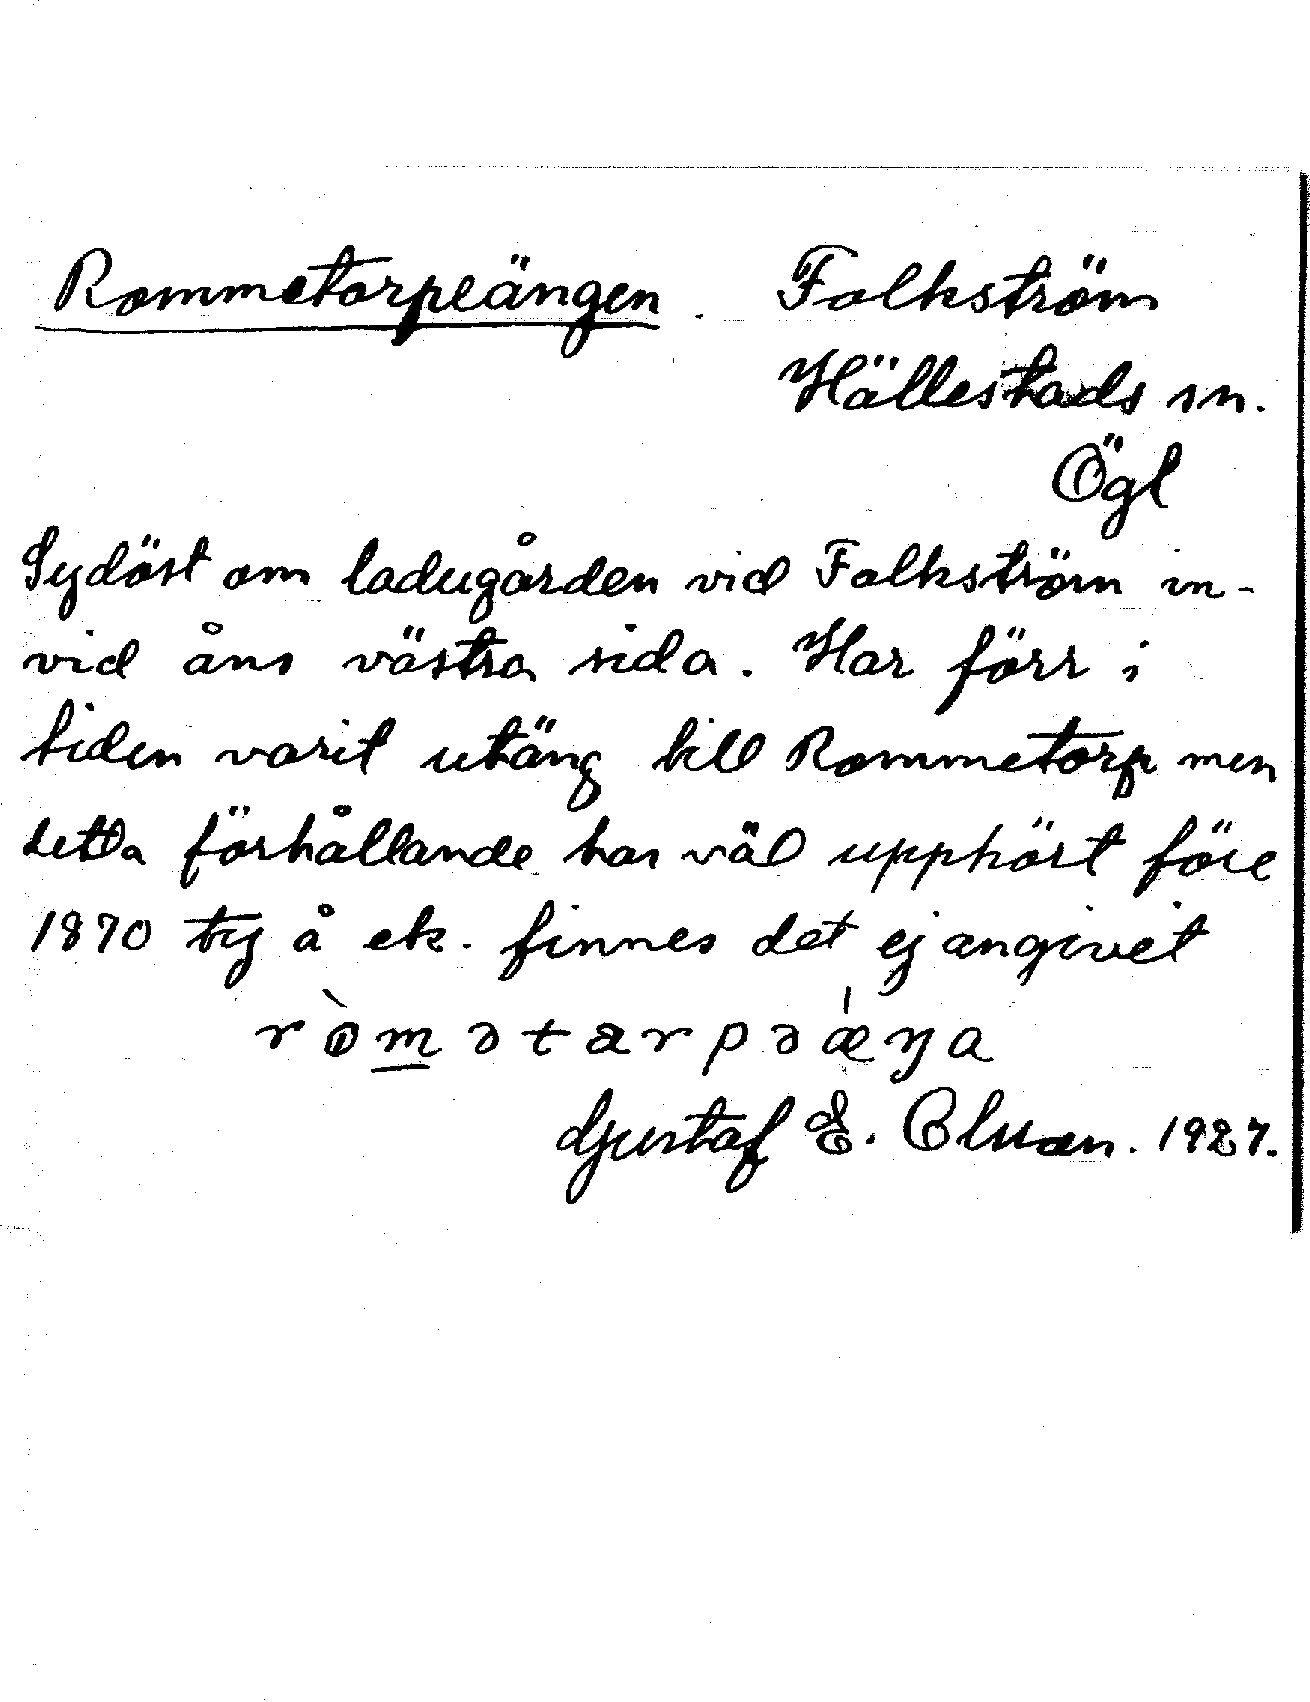 Rommetorpeängen. Folkström
Hällestads sn.
Ögl
Sydöst om ladugården vid Folkström in-
vid åns västra sida. Har förr i
tiden varit utäng till Rommetorp men
detta förhållande har väl upphört före
1870 ty å ek. finnes det ej angivet
ròmətarpəǽŋa
Gustaf E. 1927.